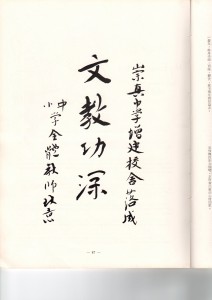 崇真中学增建校舍落成
文教功深
中
小学全體教师致意
- 47 -